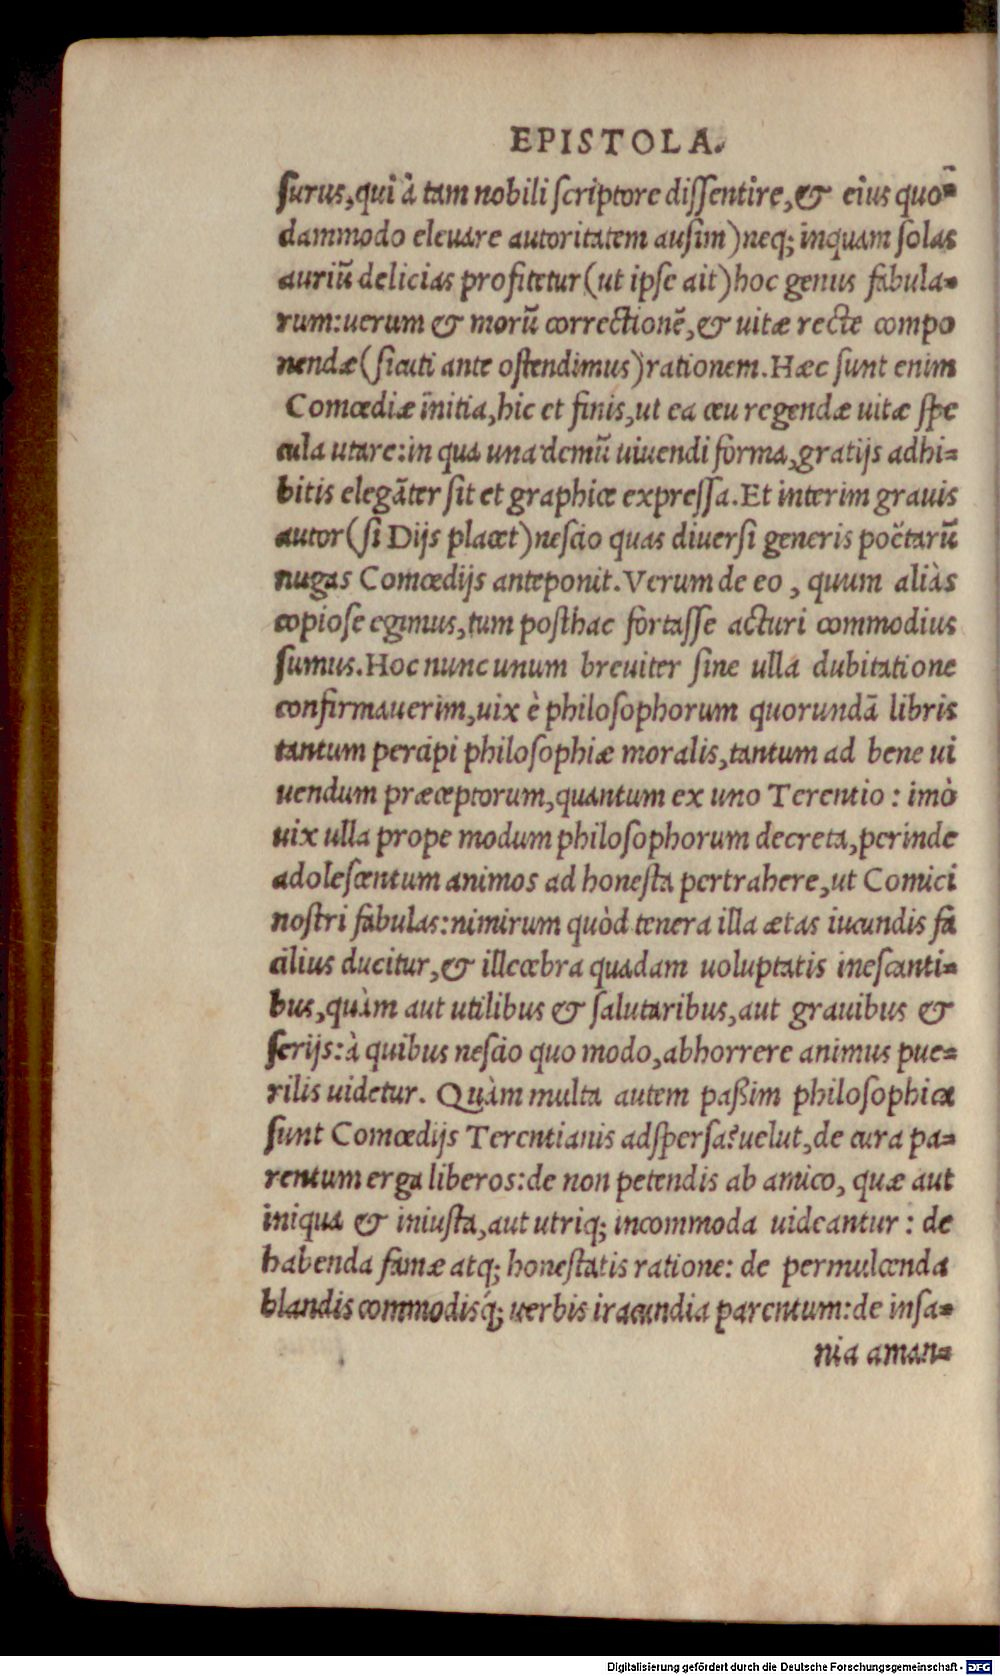 EPISTOLA.
ſurus, qui à tam nobili ſcriptore diſſentire, & eius quo=
dammodo eleuare autoritatem auſim) neq; inquam ſolas
auriũ delicias profitetur (ut ipſe ait) hoc genus fabula=
rum: uerum & morũ correctionẽ, & uitæ recte compo
nendæ (ſicuti ante oſtendimus) rationem. Hæc ſunt enim
Comœdiæ initia, hic et finis, ut ea ceu regendæ uitæ ſpe
cula utare: in qua una demũ uiuendi forma, gratijs adhi=
bitis elegãter ſit et graphice expreſſa. Et interim grauis
autor (ſi Dijs placet) neſcio quas diuerſi generis poëtarũ
nugas Comœdijs anteponit. Verum de eo, quum aliàs
copioſe egimus, tum poſthac fortaſſe acturi commodius
ſumus. Hoc nunc unum breuiter ſine ulla dubitatione
confirmauerim, uix è philoſophorum quorundã libris
tantum percipi philoſophiæ moralis, tantum ad bene ui
uendum præceptorum, quantum ex uno Terentio: imò
uix ulla prope modum philoſophorum decreta, perinde
adoleſcentum animos ad honeſta pertrahere, ut Comici
noſtri fabulas: nimirum quòd tenera illa ætas iucundis fa
cilius ducitur, & illecebra quadam uoluptatis ineſcanti=
bus, quàm aut utilibus & ſalutaribus, aut grauibus &
ſerijs: à quibus neſcio quo modo, abhorrere animus pue=
rilis uidetur. Quàm multa autem paßim philoſophica
ſunt Comœdijs Terentianis adſperſa? uelut, de cura pa=
rentum erga liberos: de non petendis ab amico, quæ aut
iniqua & iniuſta, aut utriq; incommoda uideantur: de
habenda famæ atq; honeſtatis ratione: de permulcenda
blandis commodisq́; uerbis iracundia parentum: de inſa=
nia aman=
Digitalisierung gefördert durch die Deutsche Forschungsgemeinschaft - DFG